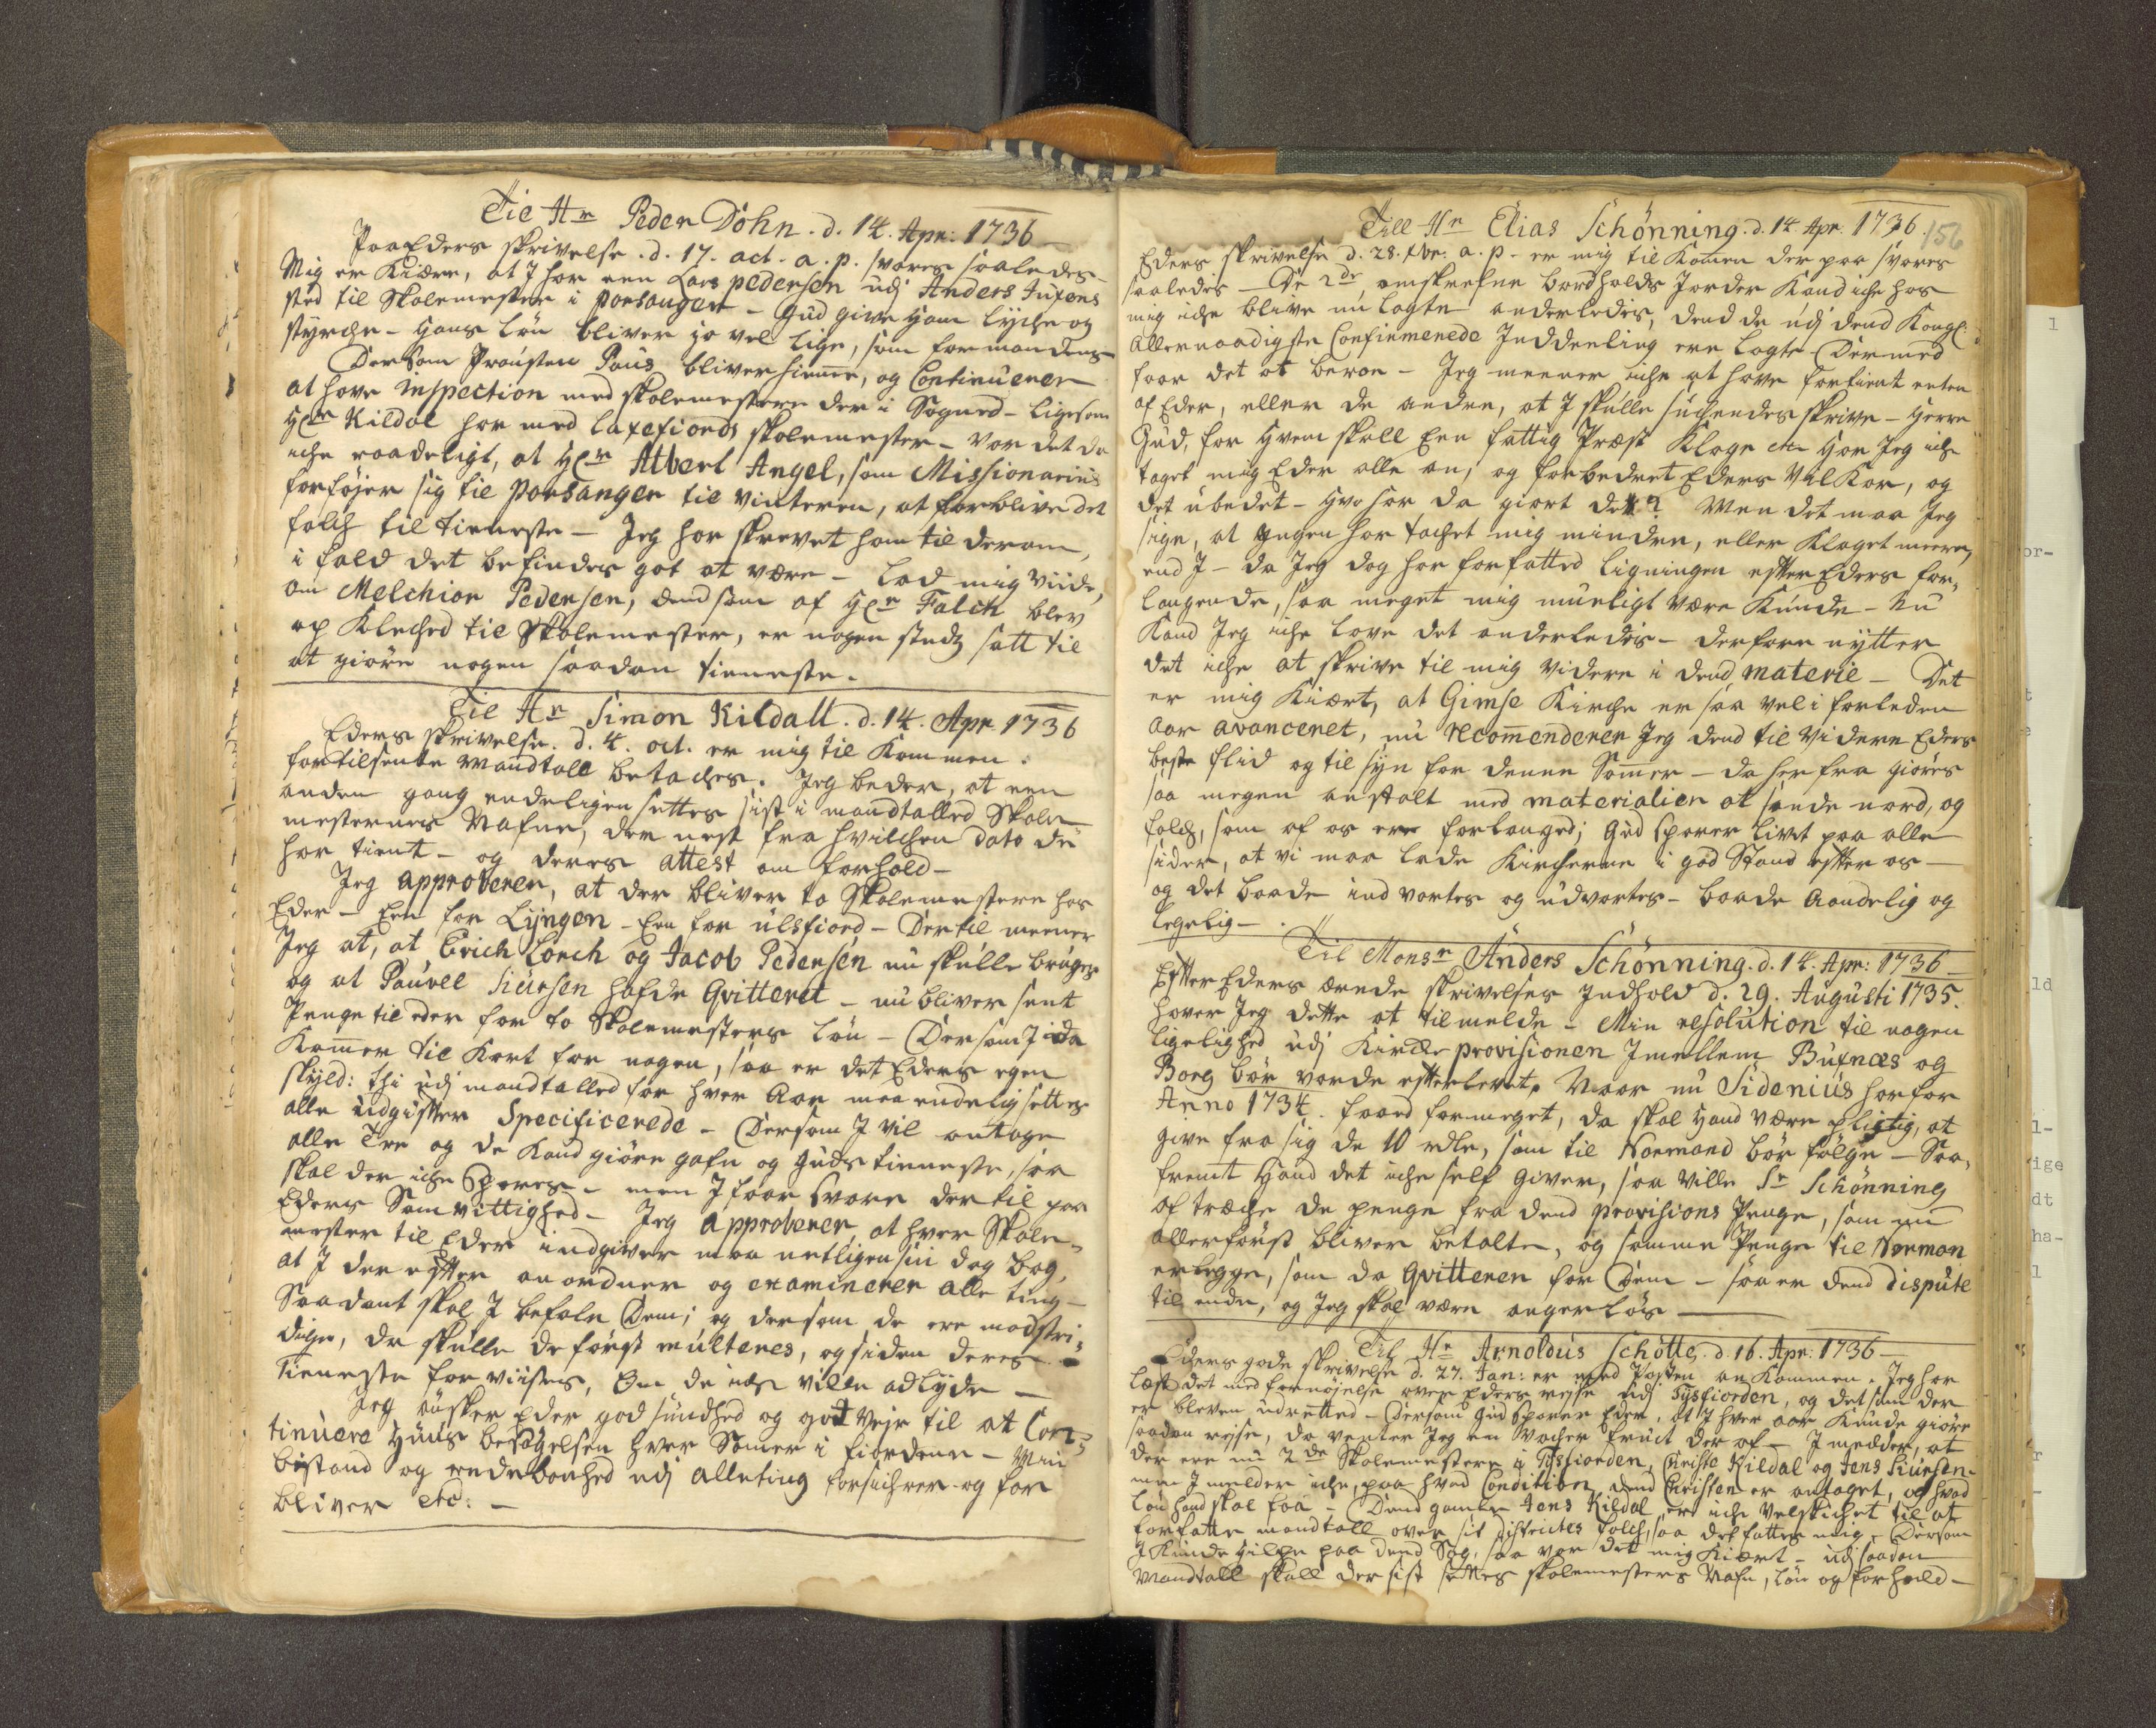 Til Hr Peder Döhn. d. 14. Apr: 1736
Paa Eders skrivelse. d. 17. oct. a. p. svares saaledes
Mig er kiære, at I har een Lars pedersen udj Anders Juxens
sted til Skolemester i porsanger - Gud give ham lyche og
styrche - Hans lön bliver jo vel lige, som formandens
Dersom Prousten Paus bliver hieme, og Continuerer
at have inspection med skolemestere der i Sogned - ligesom
Hr Kildal har med laxefiords skolemester - Var det da
iche raadeligt, at Hr Albert Angel, som Missionarius
forföjer sig til porsanger til Vinteren, at forblive det
folch til tieneste - Jeg har skrevet ham til derom,
i fald det befindes got at være - lad mig Viide,
om Melchior Pedersen, dend som af Hr Falch blev
op kleched til Skolemester, er nogen stedz satt til
at giöre nogen saadan tieneste.
Til Hr Simon Kildall. d. 14. Apr. 1736
Eders skrivelse. d. 4. oct. er mig til kommen.
for tilsendte Mandtall betaches. Jeg beder, at een
anden gang endeligen settes sist i mandtalled Skole
mesternes Nafne, der nest fra hvilchen dato de
har tient - og deres attest om forhold -
Jeg approberer, at der bliver to Skolemestere hos
Eder - Een for Lyngen - Een for ulsfiord - Dertil meener
Jeg at, at Erich Lorch og Jacob Pedersen nu skulle bruges
og at Pauvel Siursen hafde Qvitteret - nu bliver sent
Penge til eder for to Skolemesters lön - Dersom I da
kommer til kort for nogen, saa er det Eders egen
skyld: thi udj mandtalled for hver Aar maa endelig settes
alle udgifter Specificerede - Dersom I vil antage
alle Tre og de kand giöre gafn og Guds tieneste, saa
skal der iche spares - men I faar svare der til paa
Eders Samvittighed - Jeg approberer, at hver Skole-
mester til Eder indgiver maa netligen sin dag bog,
at I der efter anordner og examinerer alle ting -
Saadant skal I befale dem; og dersom de ere modstri-
dige, da skulle de först multeres, og siden deres
tieneste forviises, Om de iche ville adlyde -
Jeg önsker Eder god sundhed og got Vejr til at Con-
tinuere Huus besögelsen hver Somer i fiordene - Min
bistand og redebonhed udj alleting forsichrer og for
bliver etc: -
156
Till Hr Elias Schönning. d. 14 Apr. 1736.
Eders skrivelse d. 28. 9br. a. p. er mig til kommen der paa svares
saaledes - De 2de, omskrefne bordholds Jorder kand iche hos
mig iche blive nu lagte anderledes, dend de udj dend Kongl:
Allernaadigste Confirmerede Inddeeling ere lagte Dermed
faar det at beroe - Jeg meener iche at have fortient enten
af Eder, eller de andre, at I skulle suchendes skrive - Herre
Gud, for Hvem skall Een fattig Præst klage etc Har Jeg iche
taget mig Eder alle an, og forbedret Eders Vilkor, og
det ubedet - Hvo har da giort det? Men det maa Jeg
sige, at ingen har tachet mig mindre, eller klaget meere,
end I - da Jeg dog har forfatted ligningen efter Eders for-
langende, saa meget mig mueligt være kunde - Nu
kand Jeg iche lave det anderledes - derfore nytter
det iche at skrive til mig videre i dend materie - Det
er mig kiært, at Gimse kirche er saa vel i forleden
Aar avanceret, nu recommenderer Jeg dend til videre Eders
beste flid og til syn for denne Sommer - da her fra giöres
saa megen anstalt med materialier at sende nord, og
folch, som af os ere forlanged; Gud sparer livet paa alle
sider, at vi maa lede kircherne i god Stand efter os -
og det baade ind vortes og udvortes - baade Aandelig og
legelig -
Til Monsr Anders Schönning. d. 14. Apr: 1736
Efter Eders ærede skrivelses Indhold d. 29. Augusti 1735.
haver Jeg dette at tilmelde - Min resolution til nogen
ligelighed udj kirche provisionen Imellem Buxnæs og
Borg bör vorde efterlevet. Naar nu Sidenius har for
Anno 1734. faaed formeget, da skal Hand være pligtig, at
give fra sig de 10 rdlr, som til Normand bör fölge - Saa-
fremt Hand det iche self giver, saa ville Sr Schönning
af træche de penge fra dend provisions Penge, som nu
allerförst bliver betalte, og samme Penge til Norman
erlegge, som da qvitterer for dem - saa er dend dispute
til ende, og Jeg skal være angerlös -
Til Hr Arnoldus Schötte. d. 16. Apr: 1736
Eders gode skrivelse d. 27. Jan: er med Posten an kommen. Jeg har
læst det med fornöjelse over Eders rejse udj Tysfiorden, og det som der
er bleven udretted - Dersom Gud sparer Eder, at I hver aar kunde giöre
saadan rejse, da venter Jeg en Vacher fruct der af - I melder, at
der ere nu 2de Skolemestere i Tysfiorden, Christe Kildal og Jens Siursen -
men I melder iche, paa hvad Condition dend Christen er antaget, og hvad
lön hand skal faa - Dend gamle Jens Kildal er iche velskichet til at
forfatte mandtall over sit districtes folch, saa det fattes mig - Dersom
I kunde hielpe paa dend Sag, saa var det mig kiært - udj saadan
Mandtall skall der sist settes skolemesters Nafn, lön og forhold -